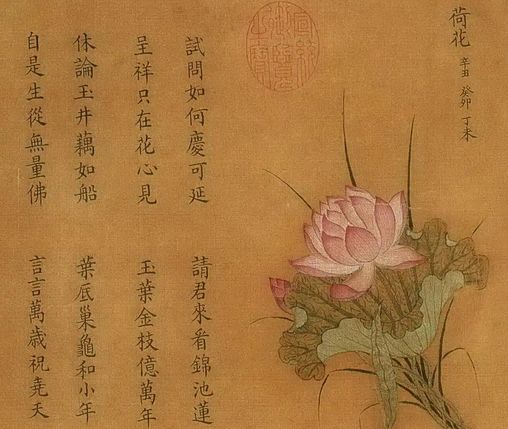 荷花 辛丑 癸卯 丁未
宣統
御覽
之寶
試問如何慶可延 請君來看錦池蓮
呈祥只在花心見 玉葉金枝億萬年
休論玉井藕如船 葉底巢龜和小年
自是生從無量佛 言言萬歲祝堯天